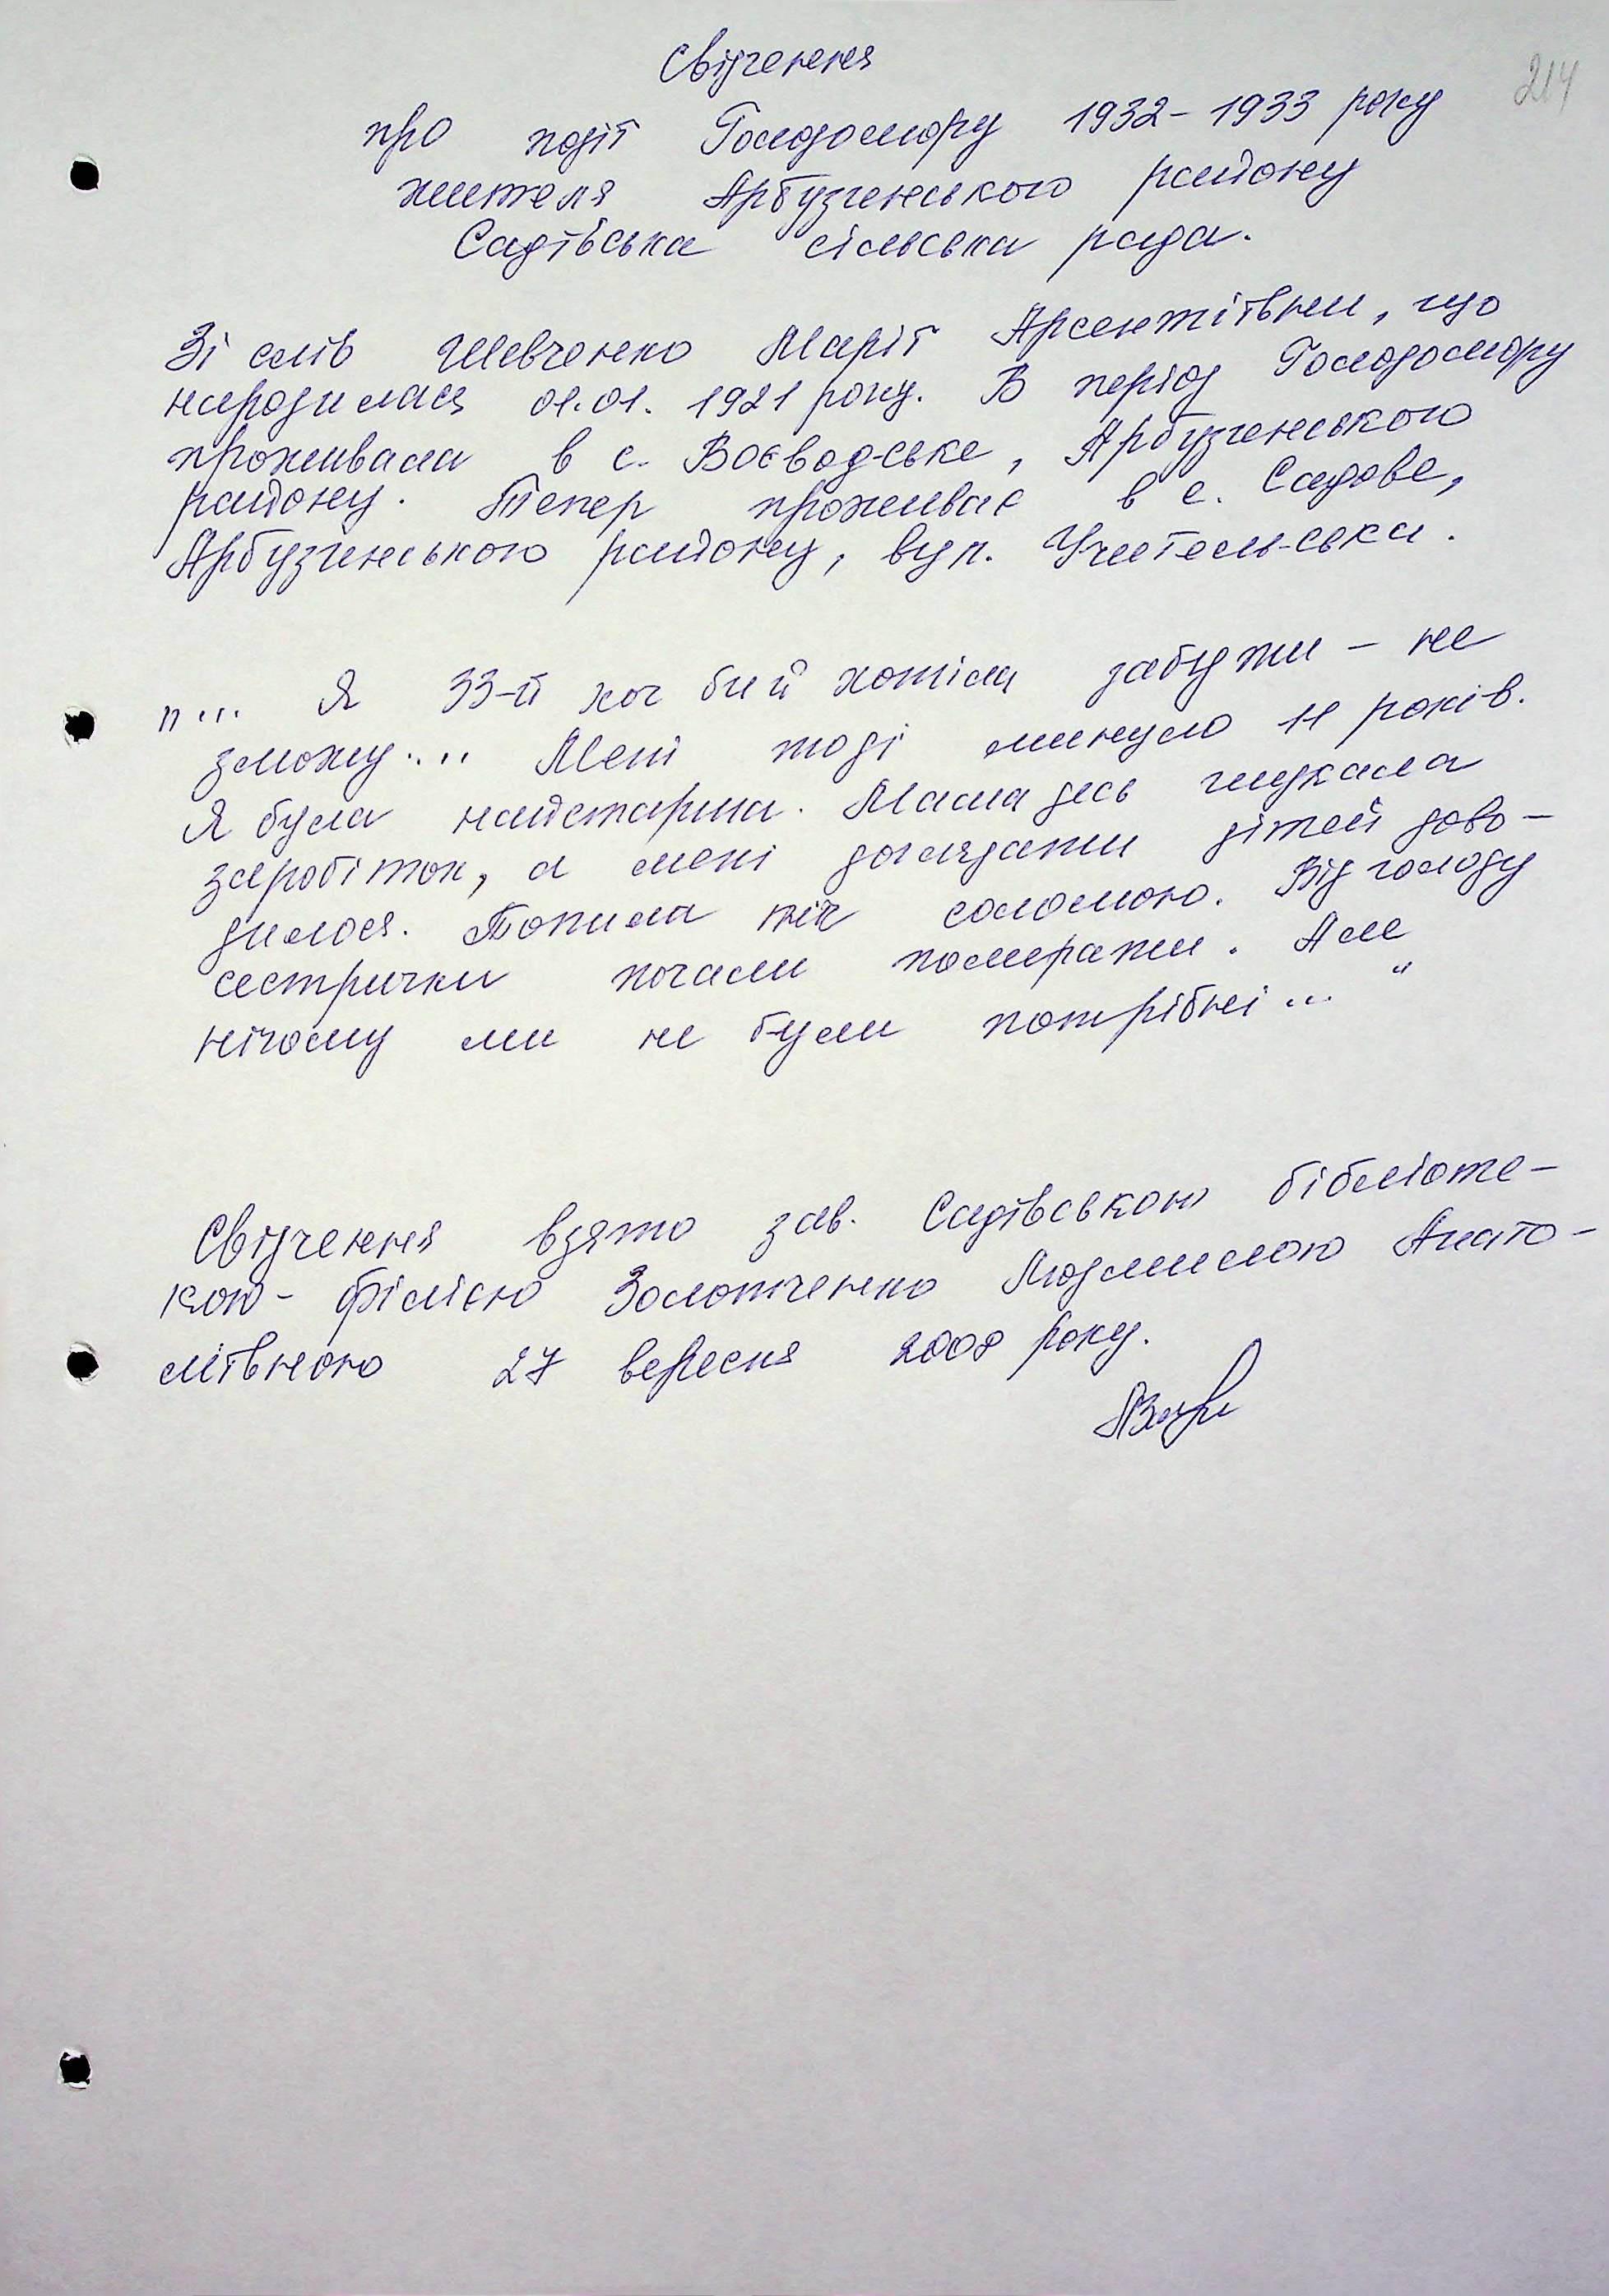 214
Свідчення
про події Голодомору 1932-1933 року
жителя Арбузинського району
Садівська сільська рада.
Зі слів Шевченко Марії Арсентіївни, що
народилася 01.01.1921 року. В період Голодомору
проживала в с. Воєводське, Арбузинського
району. Тепер проживає в с. Садове,
Арбузинського району, вул. Учительська.
"... Я 33-й хоч би й хотіла забути – не
зможу.... Мені тоді минуло 11 років.
Я була найстарша. Мама десь шукала
заробіток, а мені доглядати дітей дово-
дилося. Топила піч соломою. Від голоду
сестрички почали помирати. Але
нічому ми не були потрібні... "
Свідчення взято зав. Садівською бібліоте-
кою-філією Золотченко Людмилою Анато-
ліївною 27 вересня 2008 року.